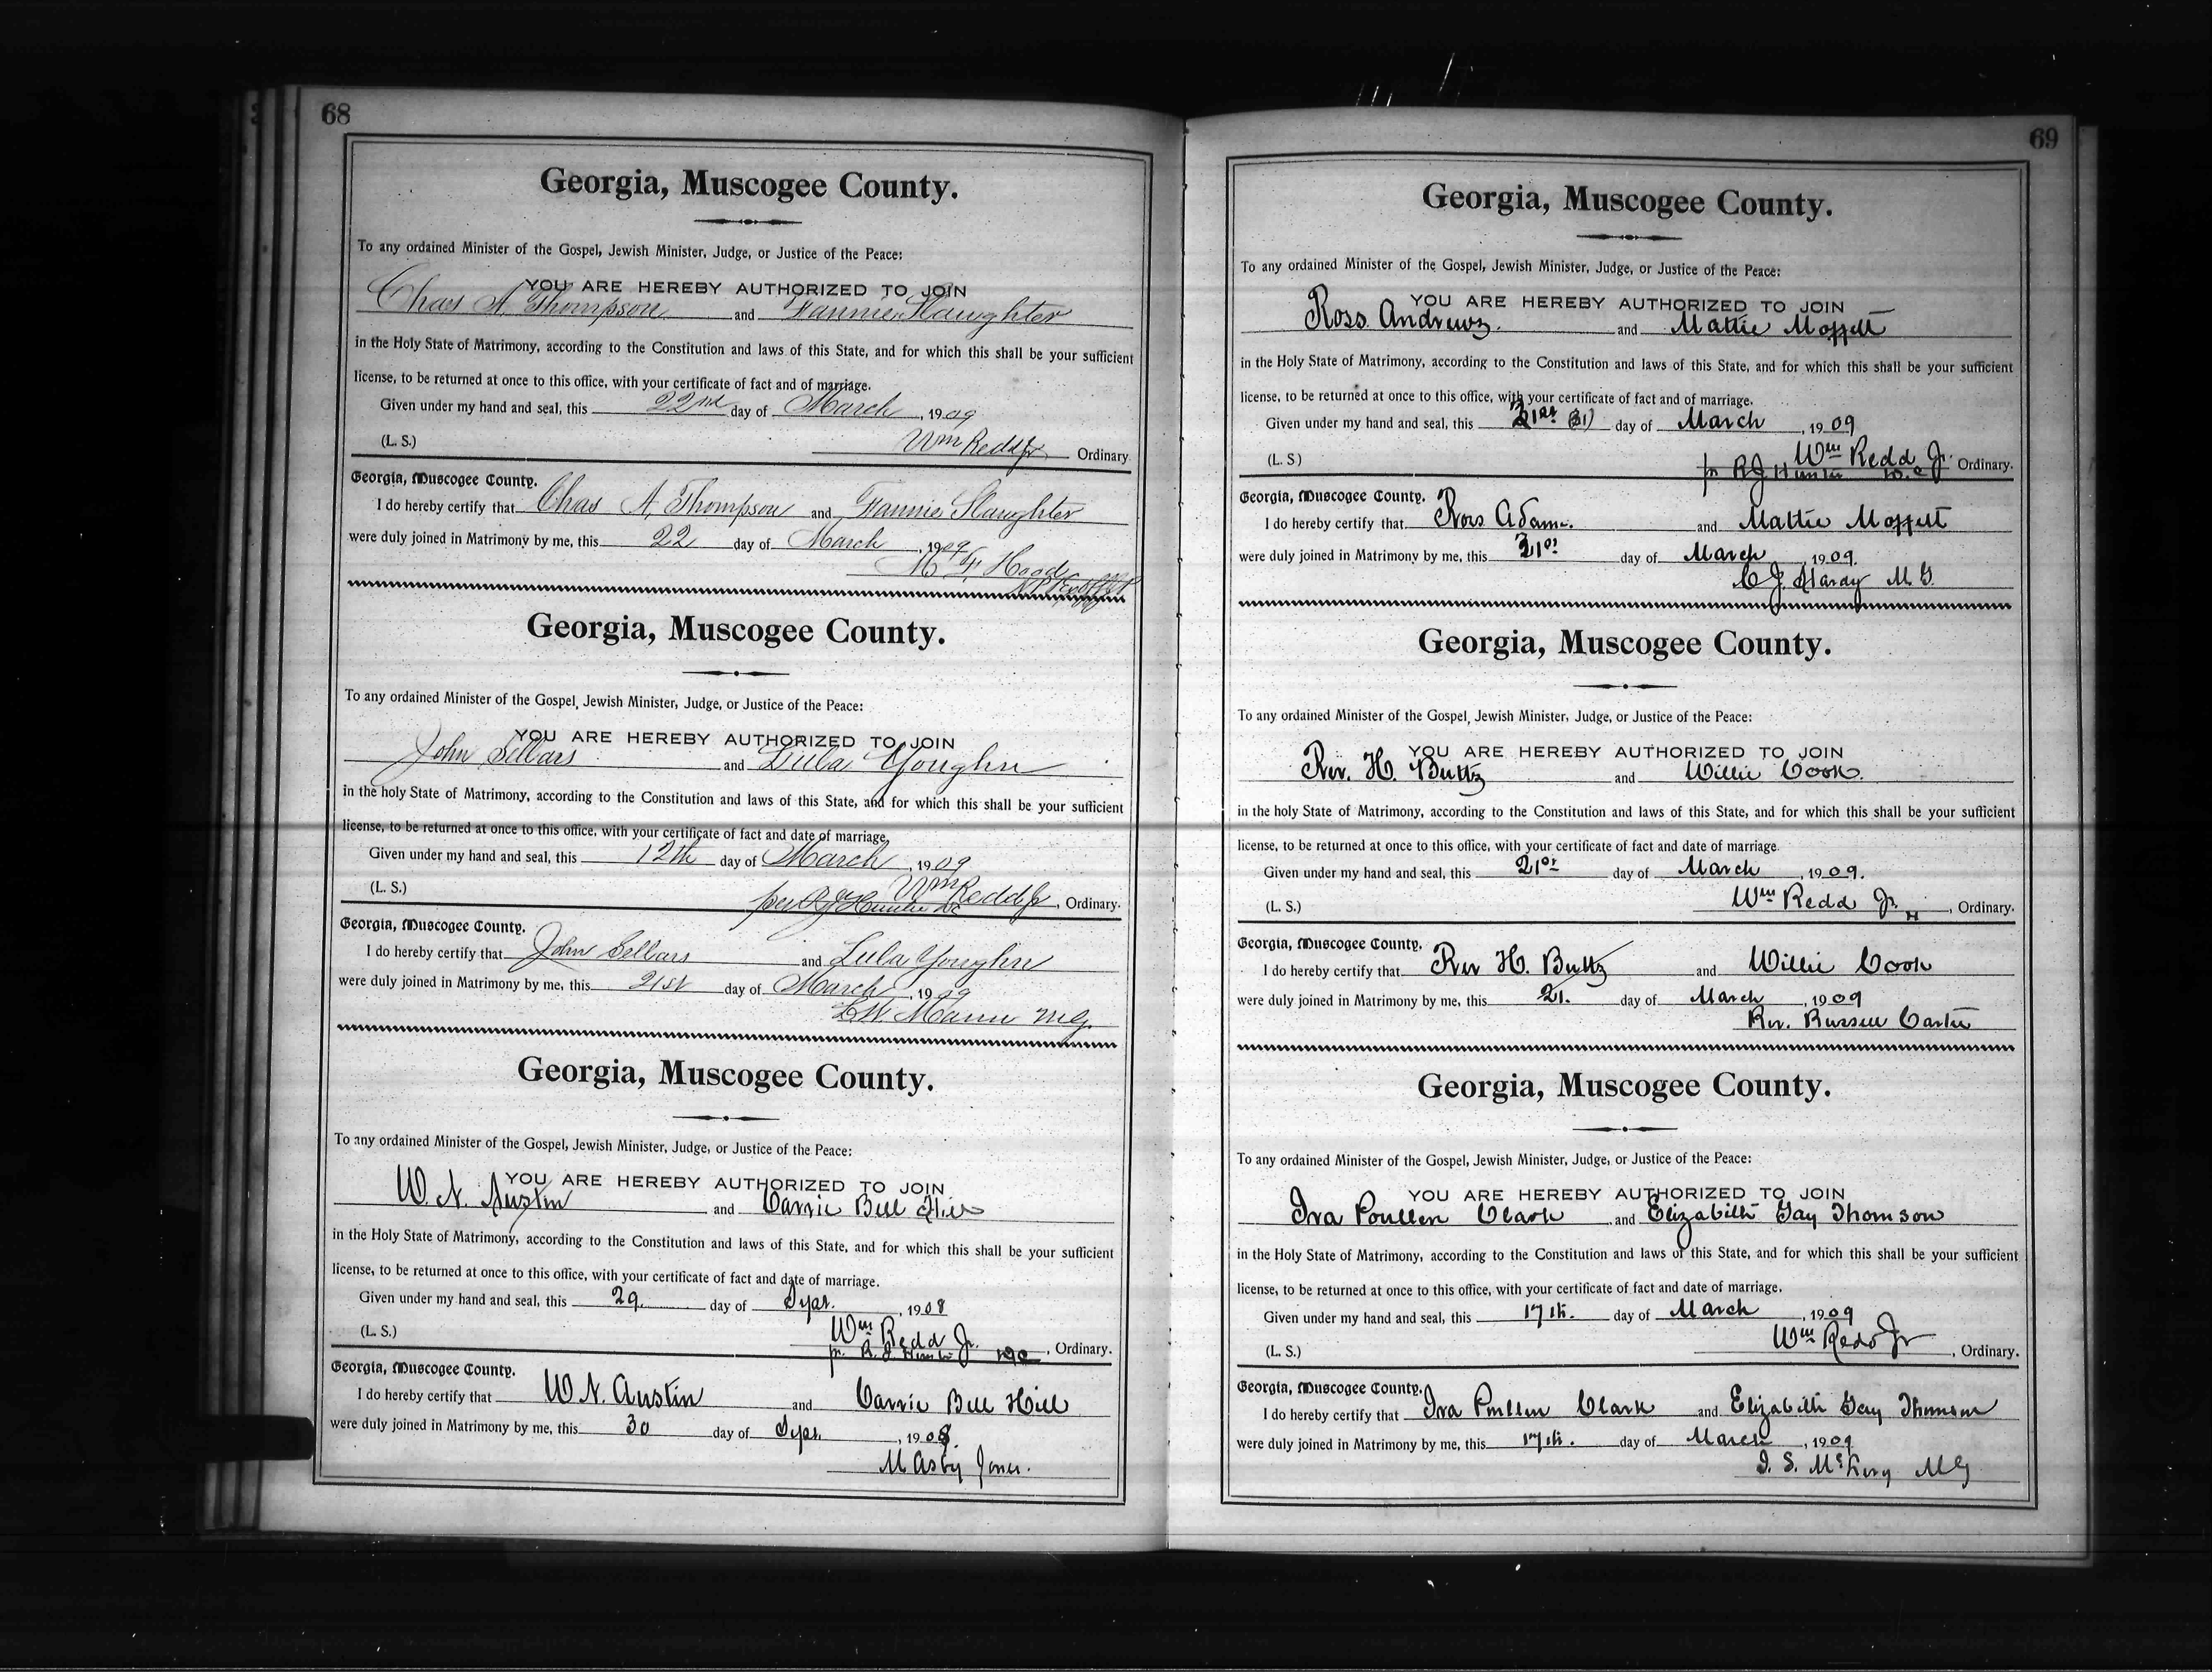 68
Georgia, Muscogee County.
To any ordained Minister of the Gospel, Jewish Minister, Judge, or Justice of the Peace:
YOU ARE HEREBY AUTHORIZED TO JOIN
Chas A. Thompson and Fannie Slaughter
in the Holy State of Matrimony, according to the Constitution and laws of this State, and for which this shall be your sufficient
license, to be returned at once to this office, with your certificate of fact and of marriage.
Given under my hand and seal, this 22nd day of March, 1909
(L. S.) Wm Redd Jr Ordinary.
Georgia, Muscogee County.
I do hereby certify that Chas A. Thompson and Fannie Slaughter
were duly joined in Matrimony by me, this 22 day of March, 1909
Hood
Georgia, Muscogee County.
To any ordained Minister of the Gospel, Jewish Minister, Judge, or Justice of the Peace:
YOU ARE HEREBY AUTHORIZED TO JOIN
John Sellars and Lula Youghn
in the holy State of Matrimony, according to the Constitution and laws of this State, and for which this shall be your sufficient
license, to be returned at once to this office, with your certificate of fact and date of marriage.
Given under my hand and seal, this 12th day of March, 1909
(L. S.) Wm Redd Jr, Ordinary.
per R J Hunter
Georgia, Muscogee County.
I do hereby certify that John Sellars and Lula Youghn
were duly joined in Matrimony by me, this 21st day of March, 1909
Mann M.G.
Georgia, Muscogee County.
To any ordained Minister of the Gospel, Jewish Minister, Judge, or Justice of the Peace:
YOU ARE HEREBY AUTHORIZED TO JOIN
W. N. Austin and Carrie Bell Hill
in the Holy State of Matrimony, according to the Constitution and laws of this State, and for which this shall be your sufficient
license, to be returned at once to this office, with your certificate of fact and date of marriage.
Given under my hand and seal, this 29. day of Sept., 1908
(L. S.) Wm Redd Jr., Ordinary.
pr. R. J Hunter
Georgia, Muscogee County.
I do hereby certify that W N. Austin and Carrie Bell Hill
were duly joined in Matrimony by me, this 30 day of Sept., 1908.
M Asby Jones.
69
Georgia, Muscogee County.
To any ordained Minister of the Gospel, Jewish Minister, Judge, or Justice of the Peace:
YOU ARE HEREBY AUTHORIZED TO JOIN
Ross Andrews. and Mattie Moffett
in the Holy State of Matrimony, according to the Constitution and laws of this State, and for which this shall be your sufficient
license, to be returned at once to this office, with your certificate of fact and of marriage.
Given under my hand and seal, this 21st (31) day of March, 1909
(L. S) Wm Redd Jr. Ordinary.
pr RJ Hunter
Georgia, Muscogee County.
I do hereby certify that Ross Adams. and Mattie Moffett
were duly joined in Matrimony by me, this 31st day of March, 1909.
C J. Hardy M. G.
Georgia, Muscogee County.
To any ordained Minister of the Gospel, Jewish Minister, Judge, or Justice of the Peace:
YOU ARE HEREBY AUTHORIZED TO JOIN
Rev. H. Buttz and Willie Cook.
in the holy State of Matrimony, according to the Constitution and laws of this State, and for which this shall be your sufficient
license, to be returned at once to this office, with your certificate of fact and date of marriage.
Given under my hand and seal, this 21st day of March, 1909.
(L. S.) Wm Redd Jr. H, Ordinary.
Georgia, Muscogee County.
I do hereby certify that Rev H. Buttz and Willie Cook
were duly joined in Matrimony by me, this 21. day of March, 1909
Rev. Russell Carter
Georgia, Muscogee County.
To any ordained Minister of the Gospel, Jewish Minister, Judge, or Justice of the Peace:
YOU ARE HEREBY AUTHORIZED TO JOIN
Ira Poullen Clark and Elizabeth Gay Thomson
in the Holy State of Matrimony, according to the Constitution and laws of this State, and for which this shall be your sufficient
license, to be returned at once to this office, with your certificate of fact and date of marriage.
Given under my hand and seal, this 17th. day of March, 1909
(L. S.) Wm Redd Jr, Ordinary.
Georgia, Muscogee County.
I do hereby certify that Ira Pullen Clark and Elizabeth Gay Thomson
were duly joined in Matrimony by me, this 17th. day of March, 1909
I. S. McElroy MG